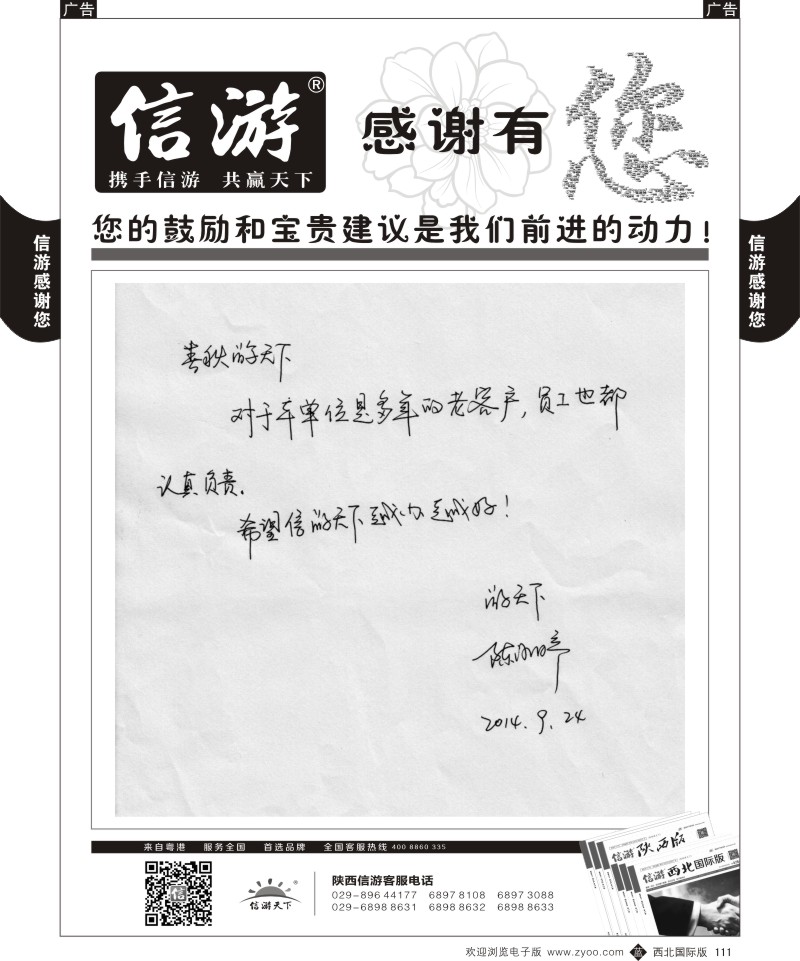 广告
广告
信游®
携手信游 共赢天下
感谢有您
您的鼓励和宝贵建议是我们前进的动力!
信游感谢您
信游感谢您
春秋游天下
对于本单位是多年的老客户,员工也都
认真负责.
希望信游天下越办越好!
游天下
2014.9.24
来自粤港 服务全国 首选品牌 全国客服热线 400 8860 335
信游 陕西版
信游 西北国际版
信游
信游天下
陕西信游客服电话
029-896 44177 6897 8108 6897 3088
029-6898 8631 6898 8632 6898 8633
欢迎浏览电子版 www.zyoo.com 蓝 西北国际版 111